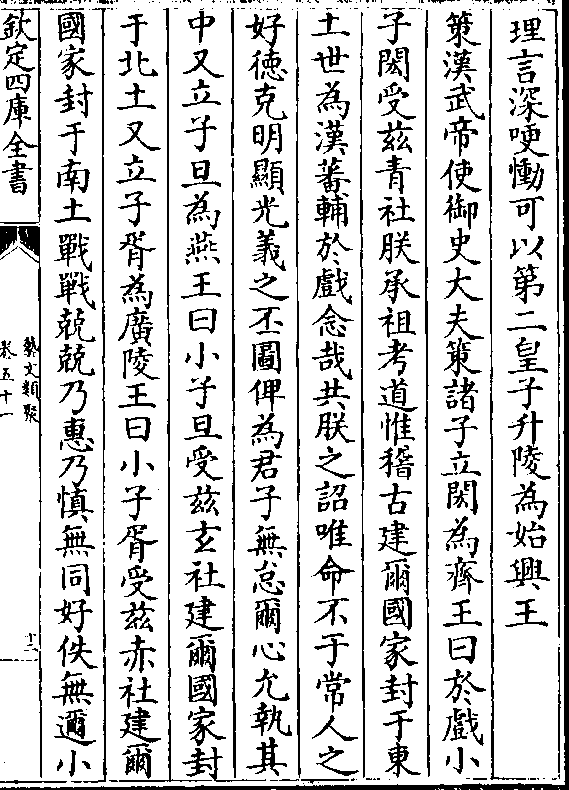 理言深哽慟可以第二皇子升陵為始興王
策漢武帝使御史大夫策諸子立閎為齊王曰於戲小
子閎受兹青社朕承祖考道惟稽古建爾國家封于東
土世為漢蕃輔於戲念哉共朕之詔唯命不于常人之
好徳克明顯光義之丕圖俾為君子無怠爾心允執其
中又立子旦為燕王曰小子旦受兹玄社建爾國家封
于北土又立子胥為廣陵王曰小子胥受兹赤社建爾
國家封于南土戰戰兢兢乃惠乃慎無同好佚無邇小
欽定四庫全書
藝文類聚
卷五十一
十二